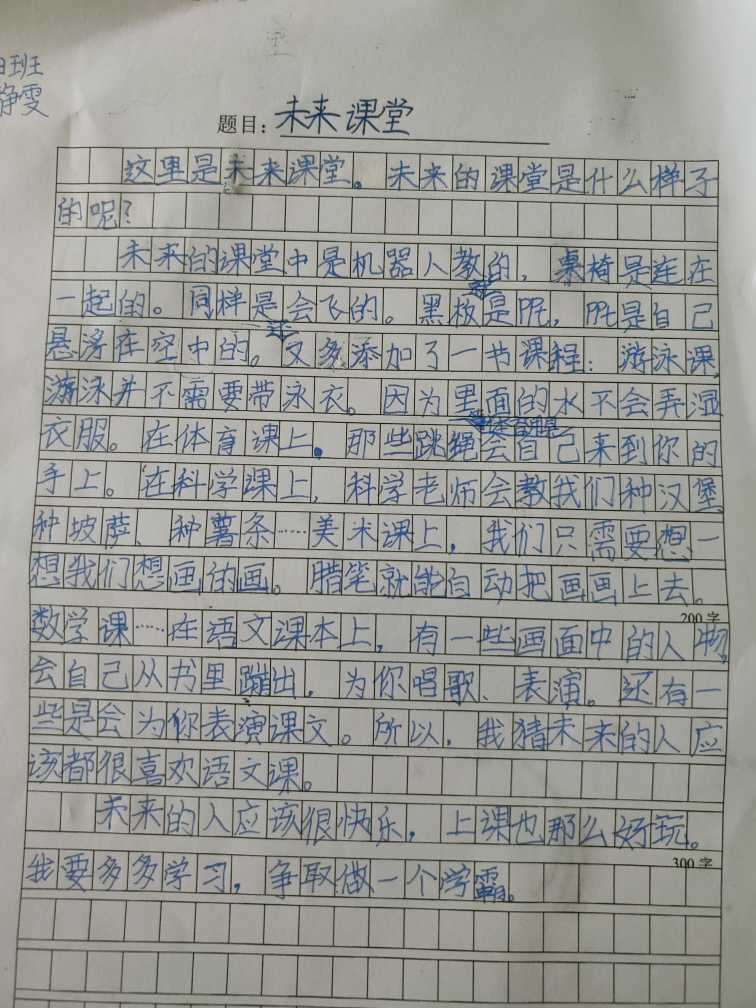 班
静雯
题目：未来课堂
这里是未来课堂。未来的课堂是什么样子
的呢？
未来的课堂中是机器人教的，桌椅是连在
一起的。同样是会飞的。黑板是呢，呢是自己
还
悬浮在空中的。又多添加了一书课程：游泳课，
游泳并不需要带泳衣。因为里面的水不会弄湿
衣服。在体育课上，那些跳绳会自己来到你的
手上。在科学课上，科学老师会教我们种汉堡，
种坡萨、种薯条……美术课上，我们只需要想一
想我们想画的画。腊笔就能自动把画画上去。
200字
数学课……在语文课本上，有一些画面中的人物，
会自己从书里蹦出，为你唱歌、表演。还有一
些是会为你表演课文。所以，我猜未来的人应
该都很喜欢语文课。
未来的人应该很快乐，上课也那么好玩。
300字
我要多多学习，争取做一个学霸。